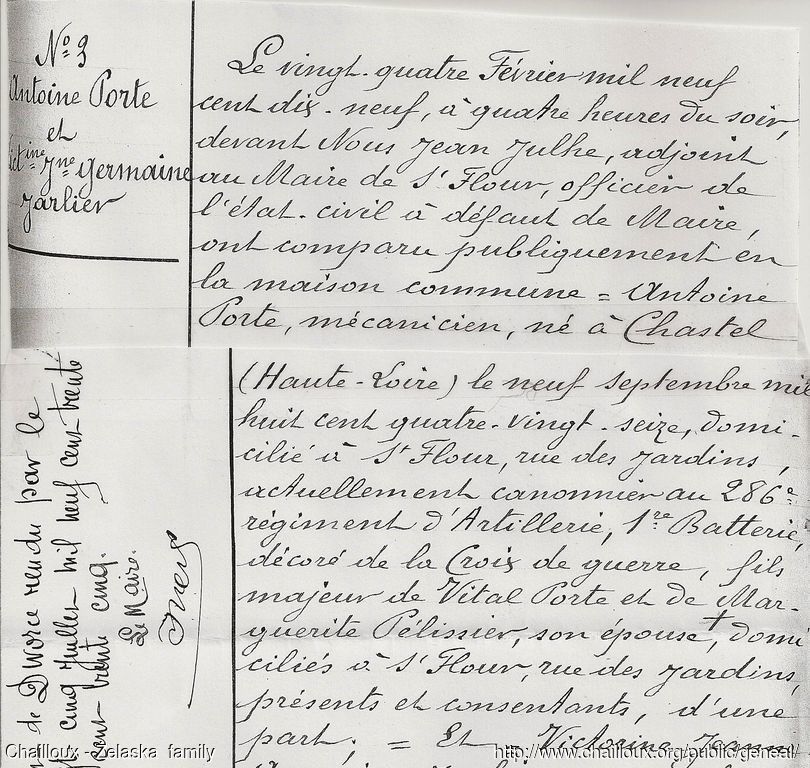 N° 9
Antoine Porte
et
ict ine Jne Germaine
Jarlier
Le vingt-quatre Février mil neuf
cent dix-neuf, à quatre heures du soir,
devant Nous Jean Julhe, adjoint
au Maire de St Flour, officier de
l'état-civil à défaut de Maire,
ont comparu publiquement en
la maison commune = Antoine
Porte, mécanicien, né à Chastel
(Haute-Loire) le neuf septembre mil
huit cent quatre-vingt-seize, domi-
cilié à St Flour, rue des Jardins,
actuellement canonnier au 286e
régiment d'Artillerie, 1re Batterie,
décoré de la Croix de guerre, fils
majeur de Vital Porte et de Mar-
guerite Pélissier, son épouse, domi
ciliés à St Flour, rue des Jardins,
présents et consentants, d'une
part; = Et = Victorine, Jeanne
de Divorce rendu par le
cinq Juillet mil neuf cent trente
cent trente cinq.
Le Maire.
Chailloux - Zelaska family
http://www.chailloux.org/public/geneal/